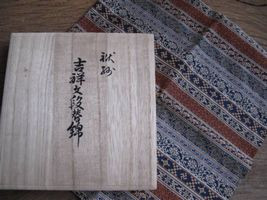 袱紗
吉祥文段替錦